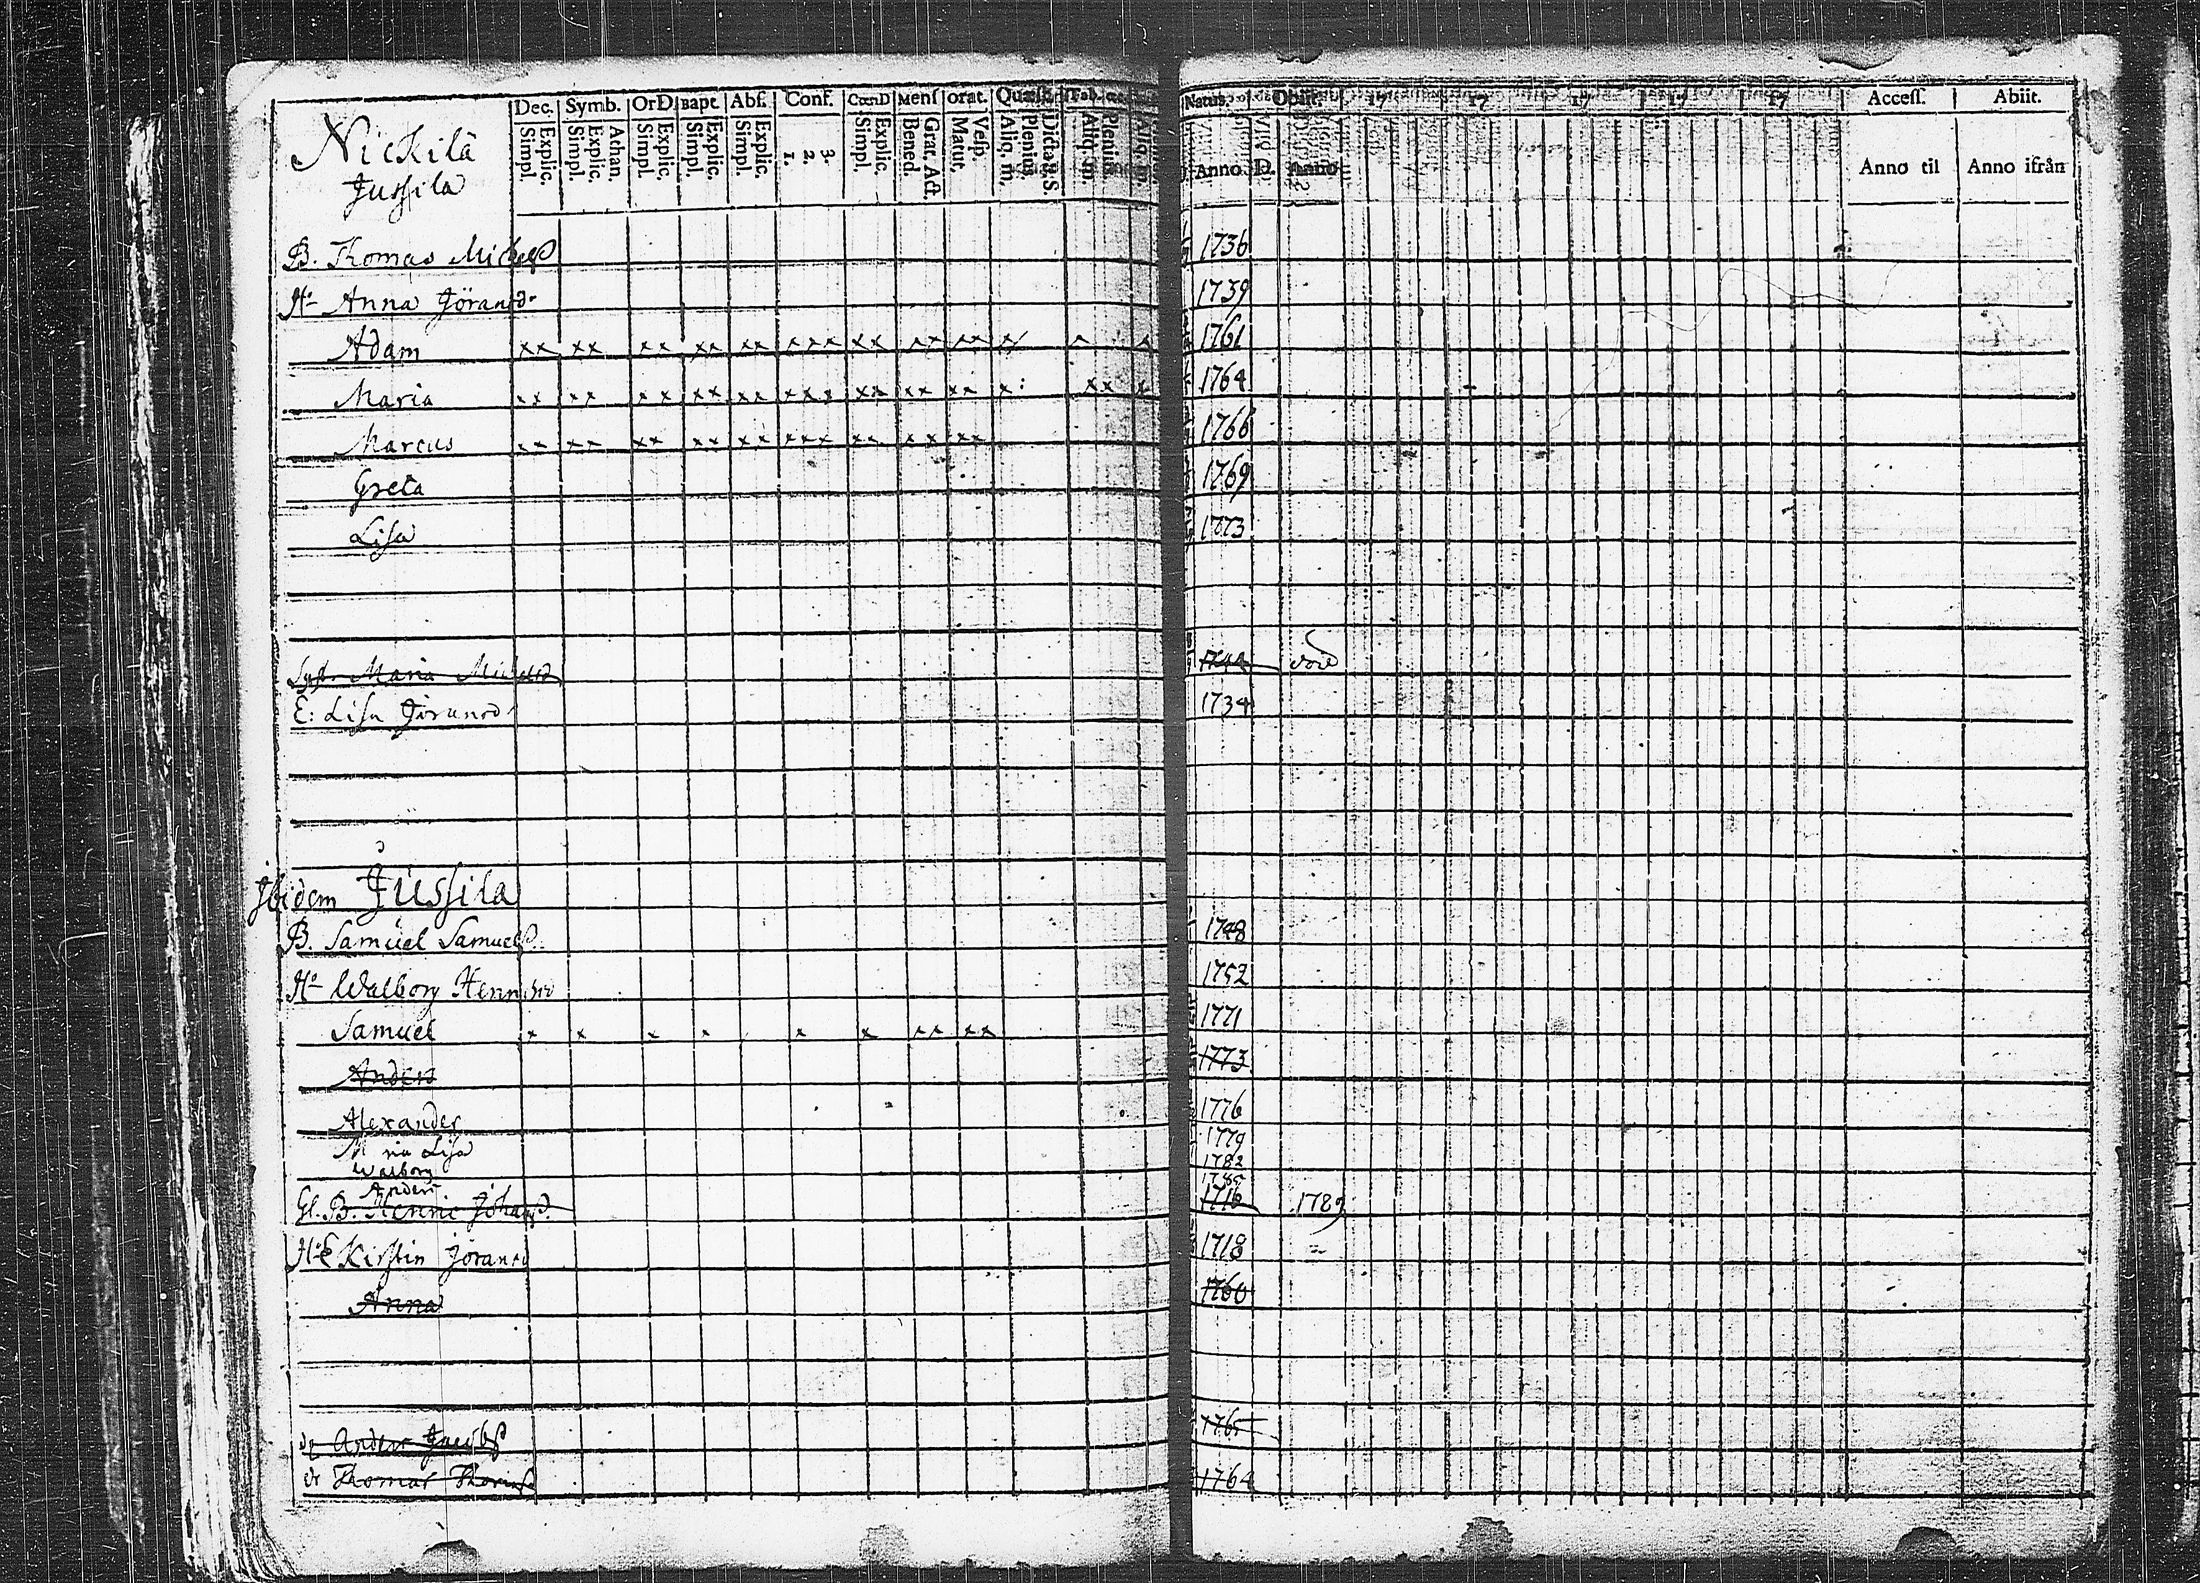 Dec. Symb. OrD. Bapt. Abs. Conf. CœnD Mens Orat. Quæst. Natus. Obiit. 17 17 17 17 17 Access. Abiit.
Explic. Simpl. Athan. Explic. Simpl. Explic. Simpl. Explic. Simpl. Explic. Simpl. 3. 2. 1. Explic. Simpl. Grat. Act. Bened. Vesp. Matut. Dicta S.S. Plenius Aliq. m. Plenius Aliq. m. Anno. D. Anno Anno til Anno ifrån
Nickilä
Jussila
B. Thomas Michelss 1736
Hu Anna Jöransd. 1739
Adam xx xx xx xx xx xxx xx xx xx x 1761
Maria xx xx xx xx xx xxx xx xx xx x xx x 1764
Marcus xx xx xx xx xx xxx xx xx xx 1766
Greta 1769
Lisa 1773
Maria död
E: Lisa Jöransd 1734
Ibidem Jussila
B. Samuel Samuelss. 1748
Hu Walborg Hennsd 1752
Samuel x x x x x x xx xx 1771
Anders 1773
Alexander 1776
Lisa 1779
Walborg 1782
Anders 1785
Gl. B. Henric Johanss. 1716 1789
Kirstin Jöransd 1718
Anna 1760
dr Anders Jacobss 1765
dr Thomas Thomass 1764